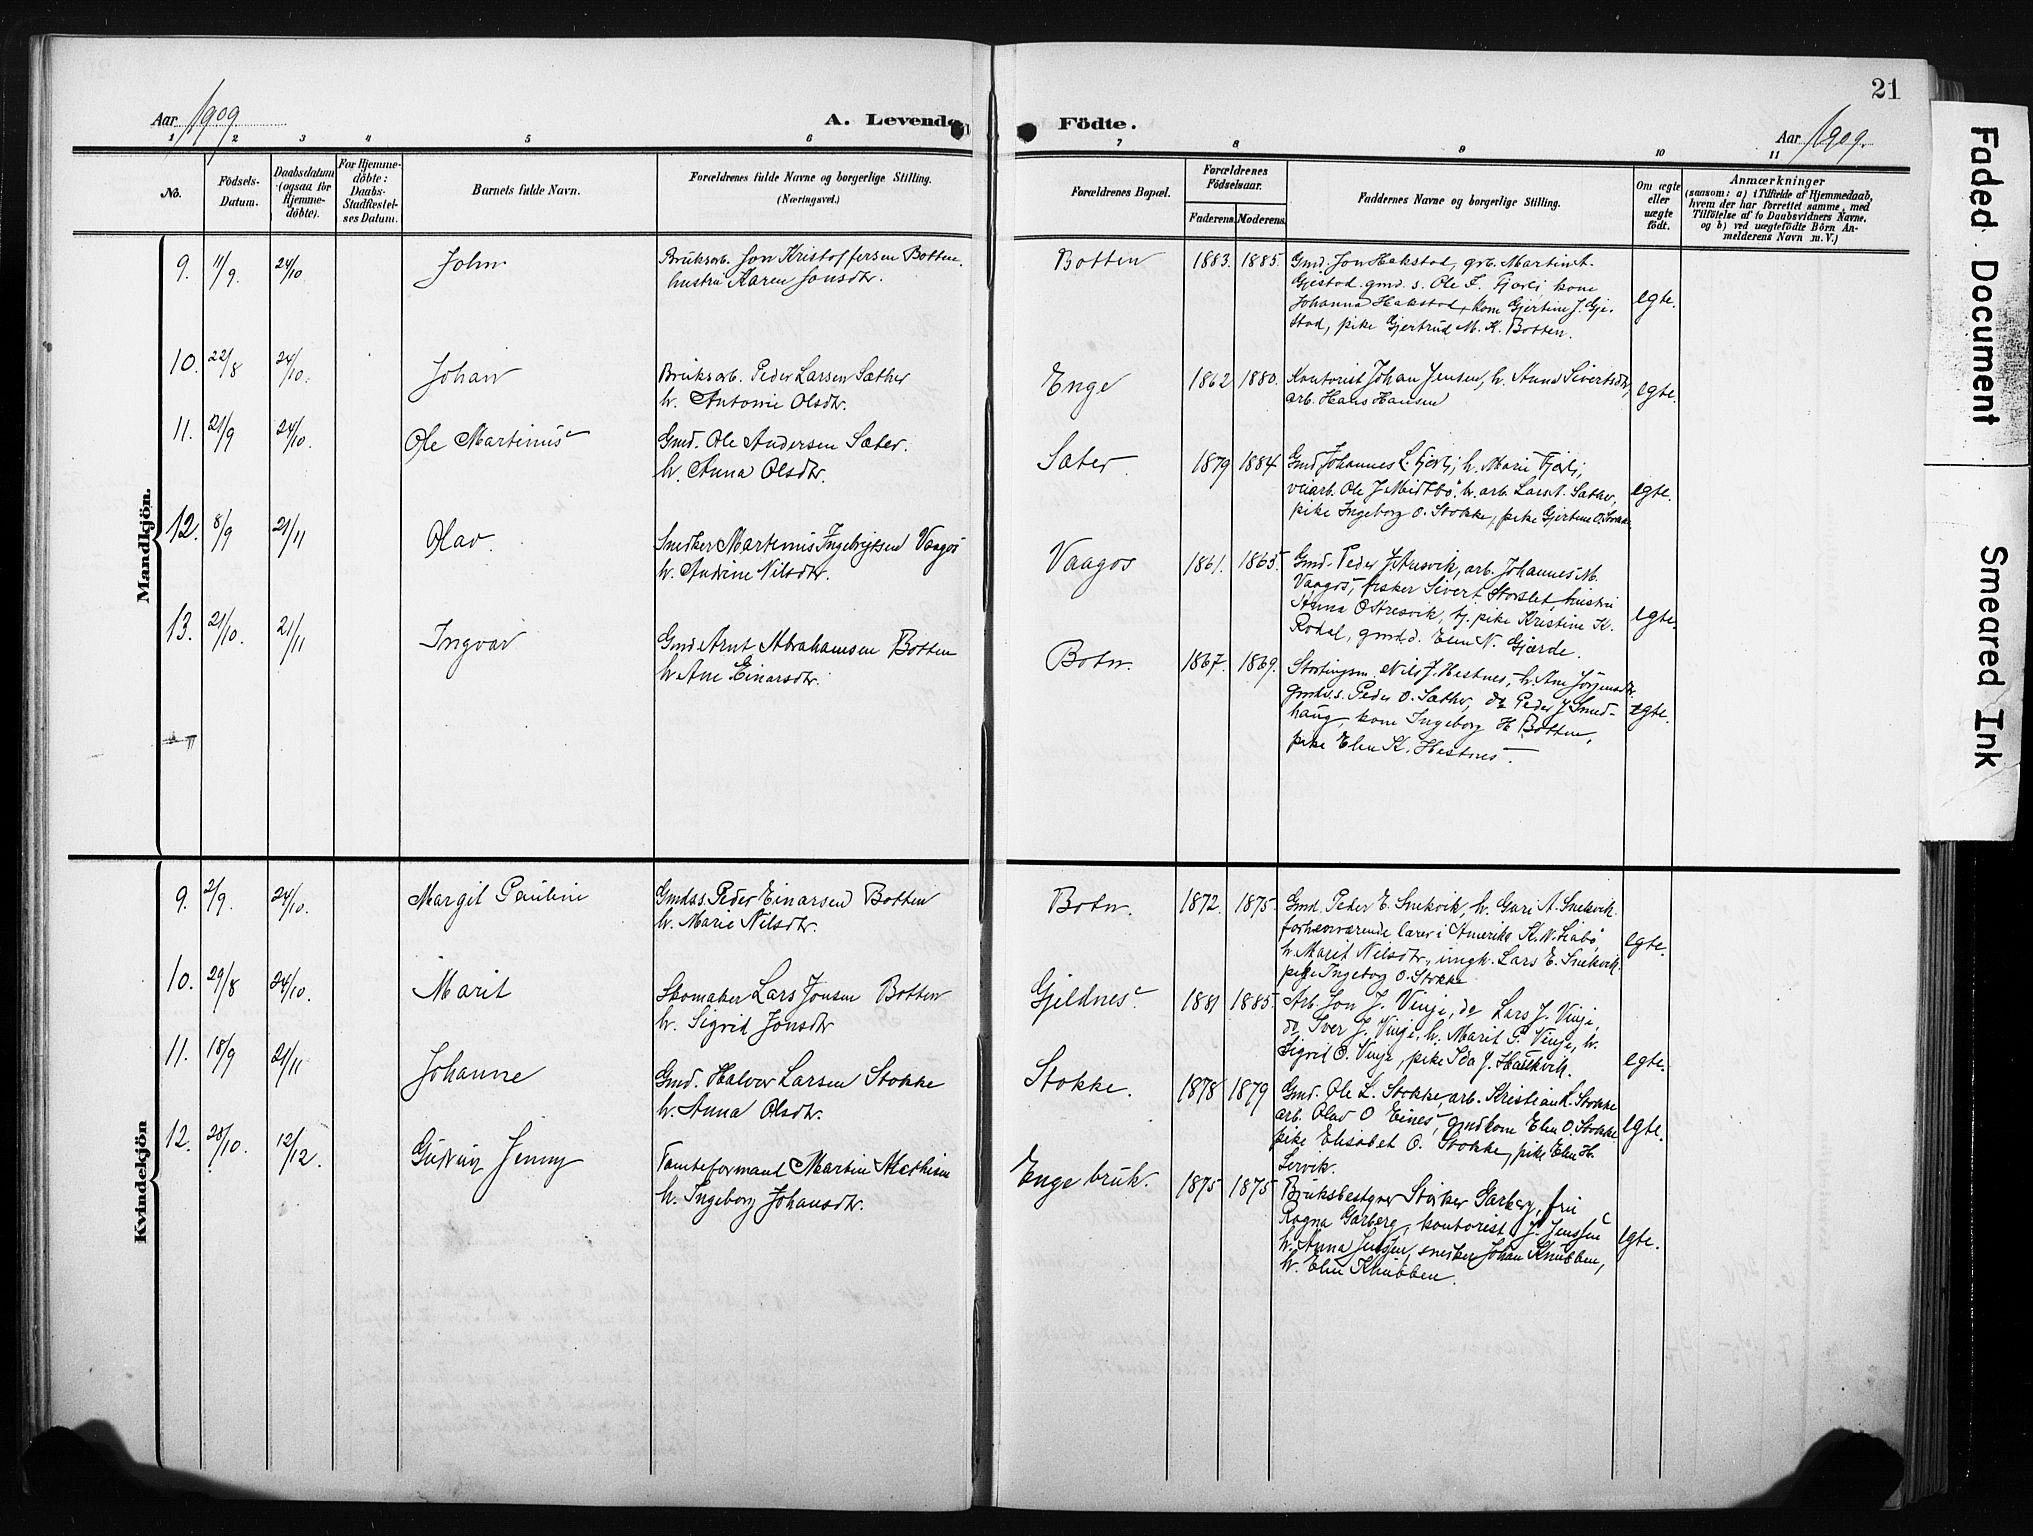 21
Aar 1909
A. Levende
Födte.
Aar 1909.
1 2 3 4 5 6 7 8 9 10 11
No.
Födsels-
Datum.
Daabsdatum
(ogsaa for
Hjemme-
döbte).
For Hjemme-
döbte:
Daabs-
Stadfæstel-
ses Datum.
Barnets fulde Navn.
Forældrenes fulde Navne og borgerlige Stilling.
(Næringsvei.)
Forældrenes Bopæl.
Forældrenes
Födselsaar.
Faderens.
Moderens.
Faddernes Navne og borgerlige Stilling.
Om ægte
eller
uægte
födt.
Anmærkninger
(saasom: a) i Tilfælde af Hjemmedaab,
hvem der har forrettet samme, med
Tilföielse af to Daabsvidners Navne,
og b) ved uægtefödte Börn An-
melderens Navn m. V.)
Mandkjön.
9. 11/9 24/10 John
Bruksarb. Jon Kristoffersen Botten.
hustru Karen Jonsdtr.
Botten 1883. 1885.
Gmd. Jon Hakstad, grb. Martin A.
Gjestad. gmd. s. Ole F. Fjærli kone
Johanna Hakstad, kone Gjertine J. Gje-
stad, pike Gjertrud M. K. Botten.
egte.
10. 22/8 24/10. Johan
Bruksarb. Peder Larsen Sæther
h. Antonie Olsdtr.
Enge 1862 1880.
Kontorist Johan Jensen, h. Anna Sivertsdtr,
arb. Hans Hansen
egte.
11. 21/9 24/10. Ole Martinus
Gmd. Ole Andersen Sæter.
h. Anna Olsdtr.
Sæter. 1879 1884.
Gmd Johannes L. Fjærli, h. Marie Fjærli,
veiarb. Ole J Midtbö. h. arb. Lars A. Sæther,
pike Ingeborg O. Stokke, pike Gjertine O. Stokke
egte.
12. 8/9 21/11 Olav.
Snedker Martinus Ingebrigtsen Vaagos
h. Andrine Nilsdtr.
Vaagos 1861. 1865.
Gmd. Peder J Aresvik, arb. Johannes M.
Vaagos, fisker Sivert Storslet, hustru
Anna O Aresvik, tj. pike Kristine K.
Rodal, gmd.d. Elen N. Gjærde.
egte.
13. 21/10. 21/11 Ingvar
Gmd Arnt Abrahamsen Botten
h. Ane Einarsdtr.
Botn. 1867. 1869.
Stortingsm. Nils J. Hestnes, h. Ane Jörgensdtr.
gmds.s. Peder O. Sæther, do Peder J. Smed-
haug, kone Ingeborg H Botten,
pike Elen K. Hestnes.
egte.
Kvindekjön
9. 2/9. 24/10. Margit Pauline
Gmds.s. Peder Einarsen Botten
h. Marie Nilsdtr.
Botn. 1872. 1875.
Gmd. Peder E. Snekvik, h. Guri A. Snekvik
forhenværende lærer i Amerika K. N. Liabö,
h. Marit Nilsdtr., ungk. Lars E. Snekvik.
pike Ingeborg O. Stokke
egte.
10. 29/8 24/10. Marit
Skomaker Lars Jonsen Botten
h. Sigrid Jonsdtr
Gjeldnes 1881 1885.
Arb. Jon J. Vinje, do Lars J. Vinje,
do Iver J. Vinje, h. Marit P. Vinje, h.
Sigrid O. Vinje, pike Ida J. Haukvik.
egte.
11. 18/9 21/11 Johanne
Gmd. Halvor Larsen Stokke
h. Anna Olsdtr.
Stokke. 1878 1879
Gmd. Ole L. Stokke, arb. Kristian L. Stokke
arb. Olav O Eines, gmdkone Elen O. Stokke
pike Elisabet O. Stokke, pike Elen H.
Lervik.
egte.
12. 28/10. 12/12. Gudrun Jenny
Tomteformand Martin Mathisen
h. Ingeborg Johansdtr.
Enge bruk. 1875 1875
Bruksbestyrer Störker Garberg, fru
Ragna Garberg, kontorist J. Jenssen
h. Anna Jenssen, snedker Johan Knubben,
h. Elen Knubben.
egte.
Faded Document
Smeared Ink